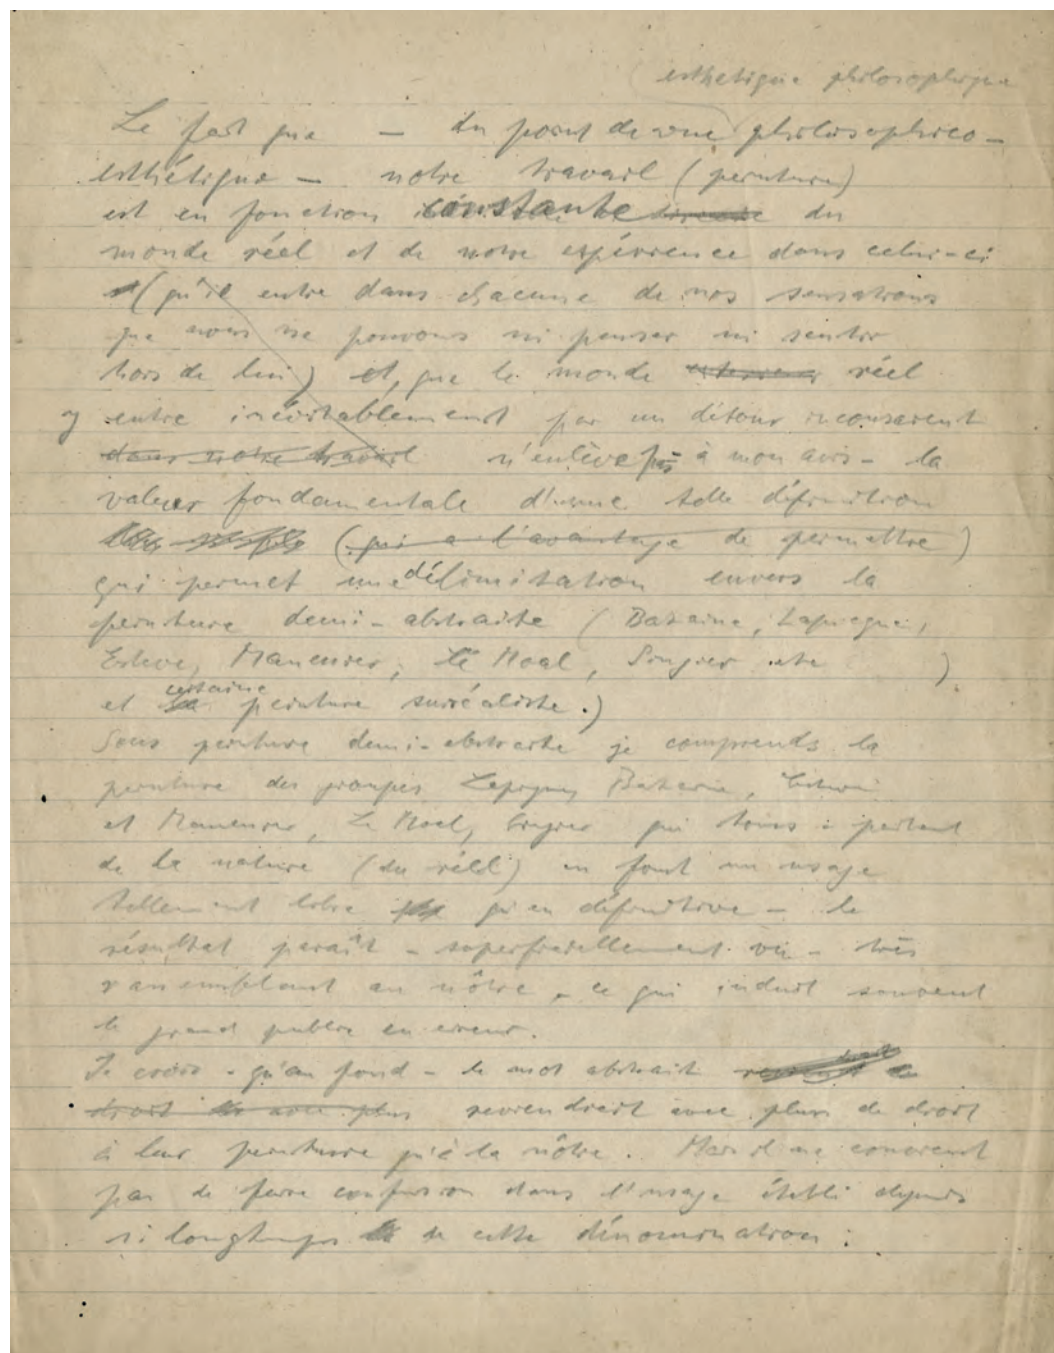 (esthetique philosophique
Le fait que — du point de vue philosophico-
esthétique — notre travail (peinture)
est en fonction constante du
monde réel et de notre expérience dans celui-ci
(qu'il entre dans chacune de nos sensations
que nous ne pouvons ni penser ni sentir
hors de lui) et, que le monde exterieur réel
y entre inévitablement par un détour inconscient
dans notre travail n'enlève pas à mon avis - la
valeur fondamentale d'une telle définition
(qui a l'avantage de permettre)
qui permet une délimitation envers la
peinture demi-abstraite (Bazaine, Lapicque,
Esteve, Manessier, Le Moal, Singier etc )
et certaine peinture surréaliste.)
Sous peinture demi-abstraite je comprends la
peinture des groupes Lapicque, Bazaine, Esteve
et Manessier, Le Moal, Singier qui tous : partant
de la nature (du réel) en font un usage
tellement libre qu'en définitive - le
résultat paraît - superficiellement vu - très
ressemblant au nôtre, - ce qui induit souvent
le grand public en erreur.
Je crois - qu'au fond - le mot abstrait
droit avec plus reviendrait avec plus de droit
à leur peinture qu'à la nôtre. Mais il ne convient
pas de faire confusion dans l'usage établi depuis
si longtemps de cette dénomination :